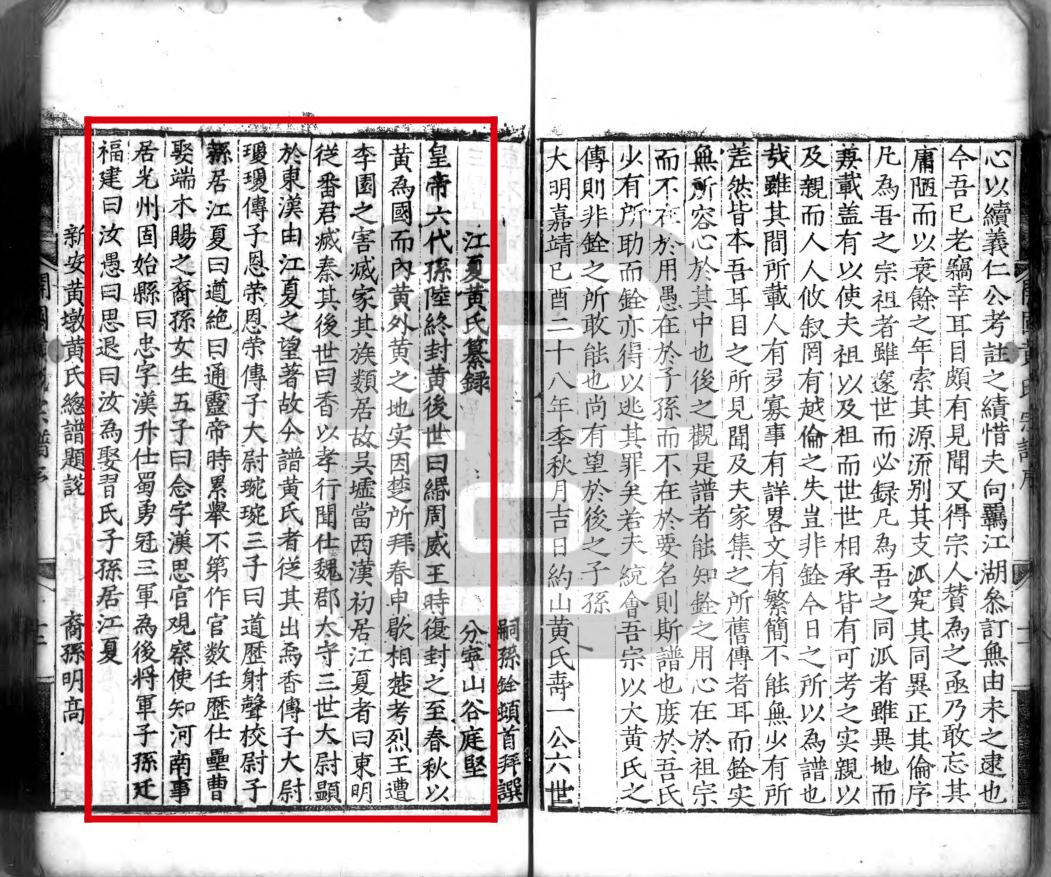 心以續義仁公考註之績惜夫向羈江湖叅訂無由未之逮也
今吾已老竊幸耳目頗有見聞又得宗人賛為之亟乃敢忘其
庸陋而以衰餘之年索其源流別其支泒究其同異正其倫序
凡為吾之宗祖者雖邃世而必録凡為吾之同泒者雖異地而
兼載盖有以使夫祖以及祖而世世相承皆有可考之实親以
及親而人人攸叙罔有越倫之失豈非銓今日之所以為譜也
哉雖其間所載人有多寡事有詳畧文有繁簡不能無少有所
差然皆本吾耳目之所見聞及夫家集之所舊傳者耳而銓实
無所容心於其中也後之觀是譜者能知銓之用心在於祖宗
而不在於用愚在於子孫而不在於要名則斯譜也庻於吾氏
少有所助而銓亦得以逃其罪矣若夫統會吾宗以大黄氏之
傳則非銓之所敢能也尚有望於後之子孫
大明嘉靖己酉二十八年季秋月吉日約山黄氏壽一公六世
嗣孫銓頓首拜譔
江夏黄氏纂録 分寧山谷庭堅
皇帝六代孫陸終封黄後世曰緡周威王時復封之至春秋以
黄為國而內黄外黄之地实因楚所拜春申歇相楚考烈王遭
李園之害滅家其族類居故吳墟當西漢初居江夏者曰東明
從番君滅秦其後世曰香以孝行聞仕魏郡大守三世大尉顯
於東漢由江夏之望著故今譜黄氏者從其出焉香傳子大尉
瓊瓊傳子恩荣恩荣傳子大尉琬琬三子曰道歷射聲校尉子
縣居江夏曰道絶曰通靈帝時累舉不第作官数任歷仕壘曹
娶端木賜之裔孫女生五子曰念字漢思官观察使知河南事
居光州固始縣曰忠字漢升仕蜀勇冠三軍為後将軍子孫迁
福建曰汝愚曰思退曰汝為娶習氏子孫居江夏
新安黄墩黄氏總譜題説 裔孫明高